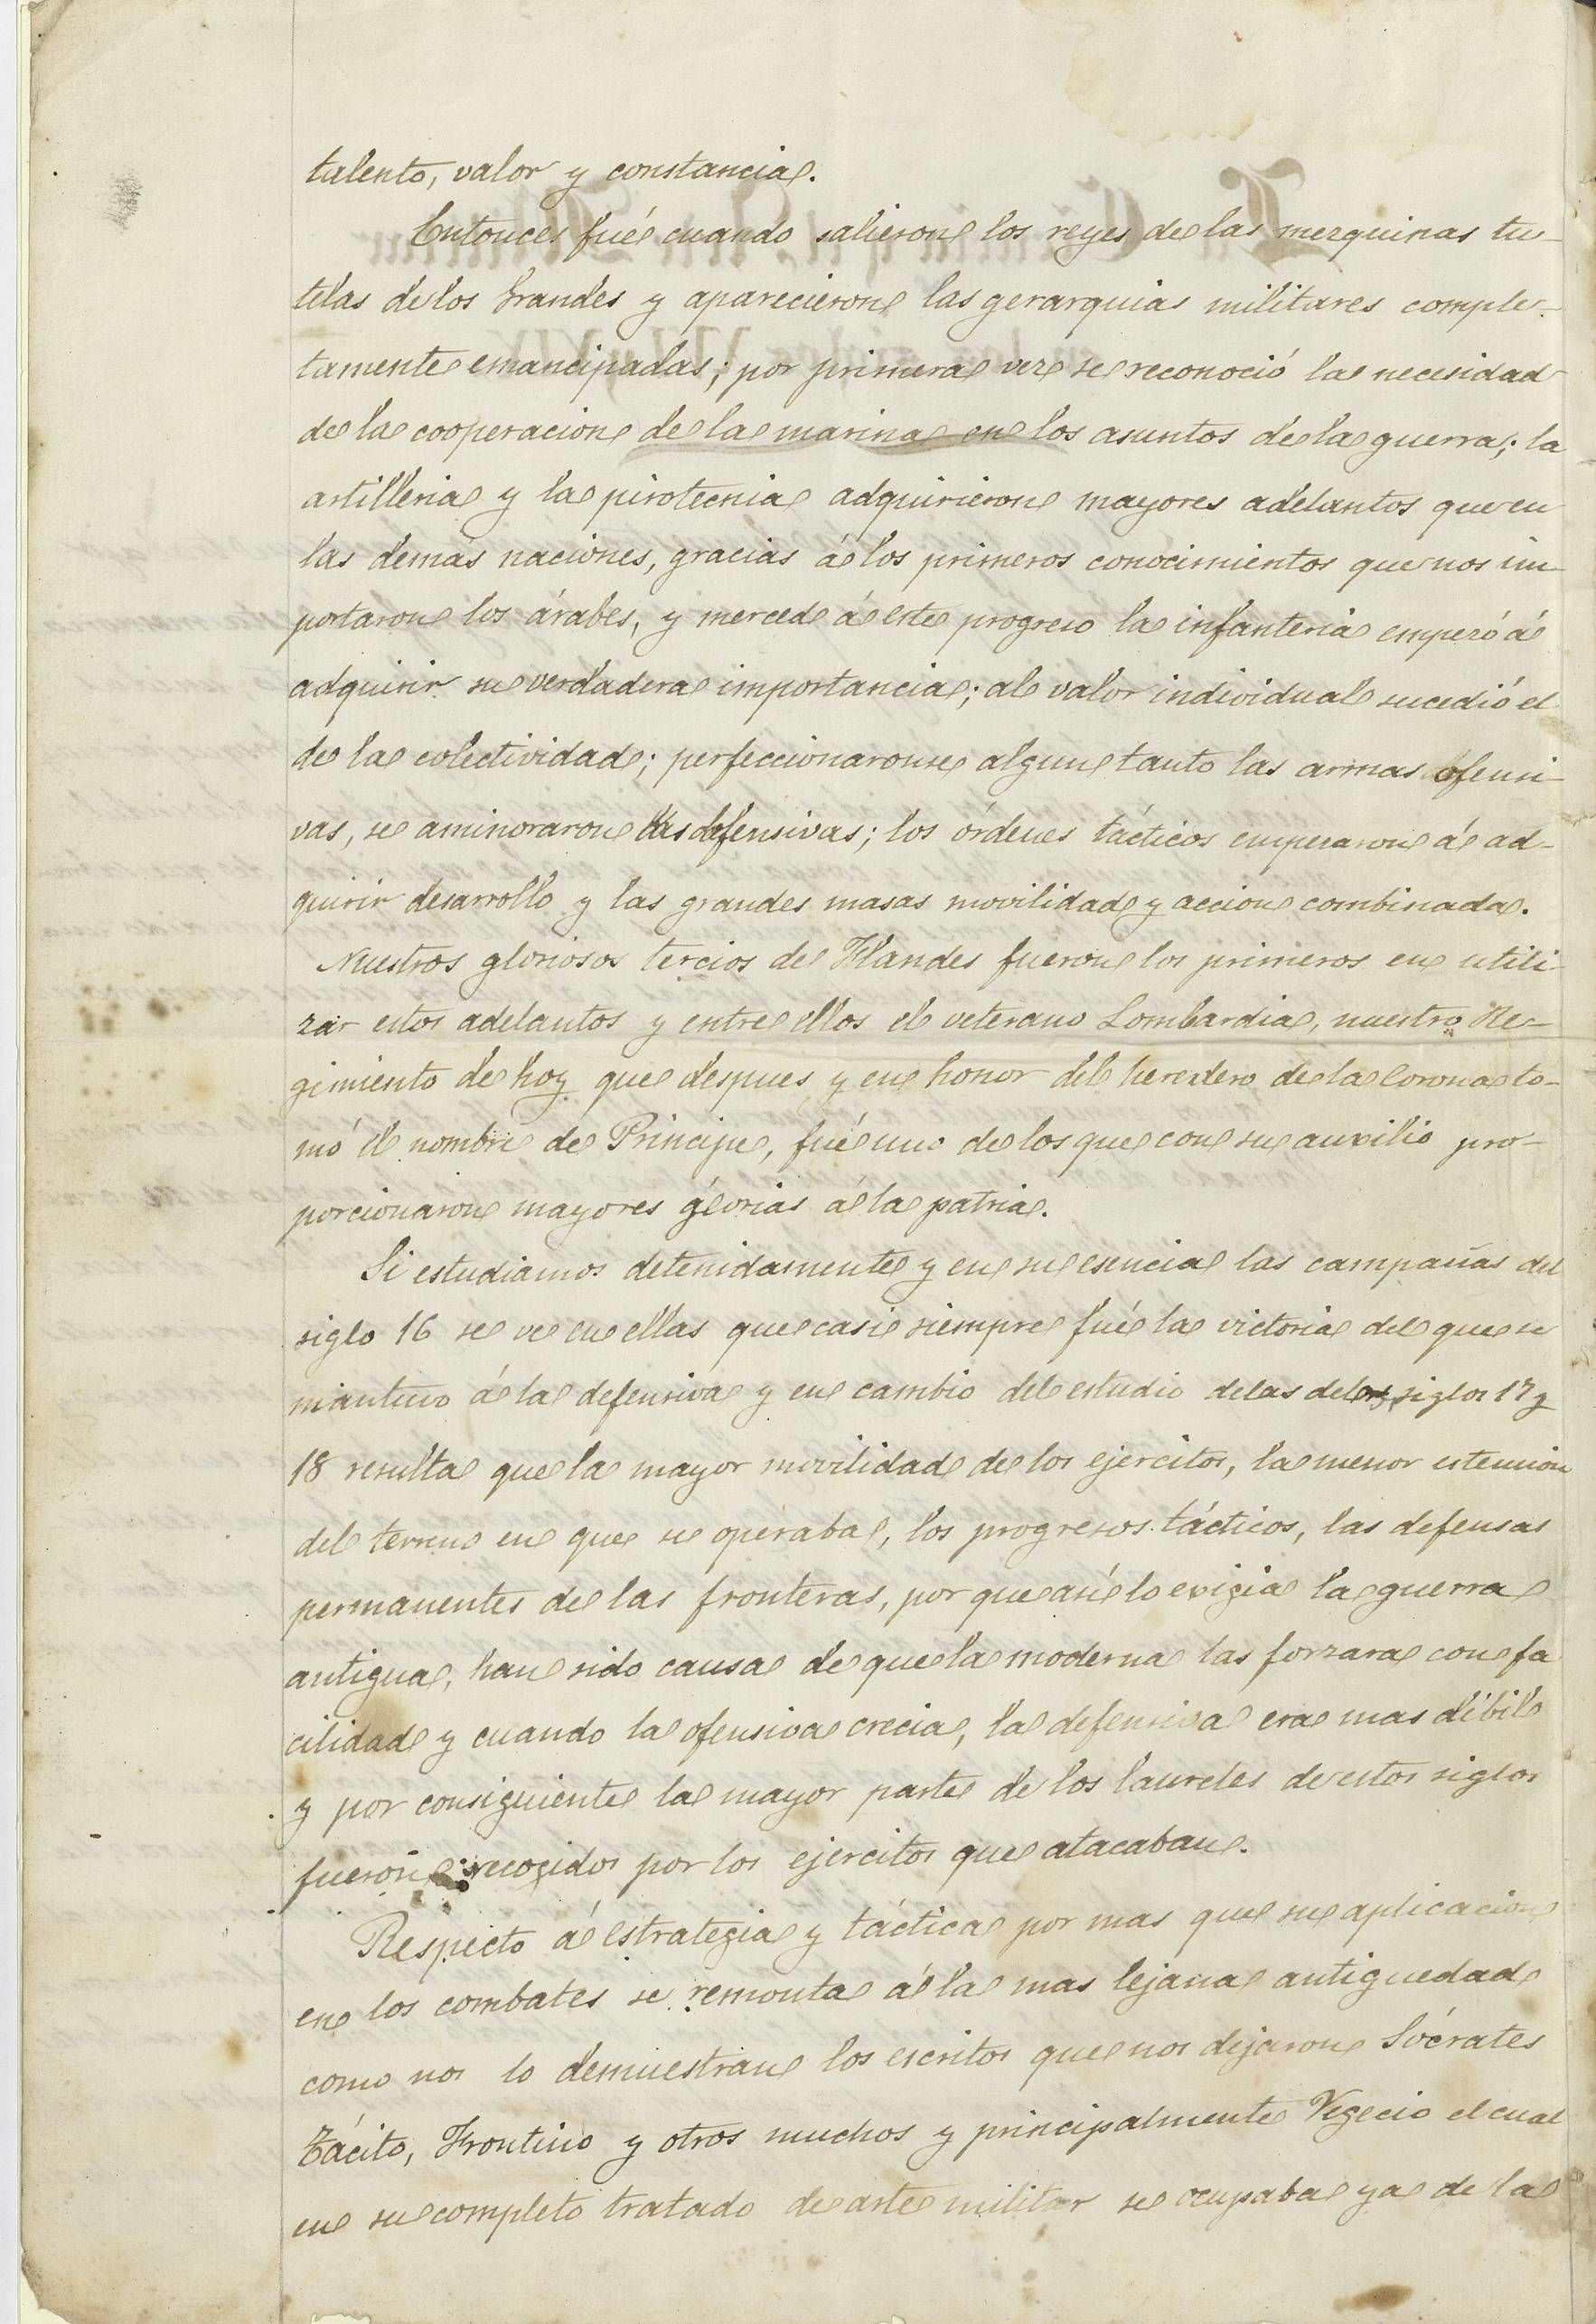 talento, valor y constancia.
Entonces fué cuando salieron los reyes de las mezquinas tu-
telas de los Grandes y aparecieron las gerarquias militares comple-
tamente emancipadas; por primera vez se reconoció la necesidad
de la cooperacion de la marina en los asuntos de la guerra; la
artilleria y la pirotecnia adquirieron mayores adelantos que en
las demás naciones, gracias á los primeros conocimientos que nos im-
portaron los árabes, y merced á este progreso la infanteria empezó á
adquirir su verdadera importancia; al valor individual sucedió el
de la colectividad; perfeccionaronse algun tanto las armas ofensi-
vas, se aminoraron las defensivas; los órdenes tácticos empezaron á ad-
quirir desarrollo y las grandes masas movilidad y accion combinada.
Nuestros gloriosos tercios de Flandes fueron los primeros en utili-
zar estos adelantos y entre ellos el veterano Lombardia, nuestro Re-
gimiento de hoy que despues y en honor del heredero de la Corona to-
mó el nombre de Principe, fué uno de los que con su auxilio pro-
porcionaron mayores glorias á la patria.
Si estudiamos detenidamente y en su esencia las campañas del
siglo 16 se ve en ellas que casi siempre fué la victoria del que se
mantuvo á la defensiva y en cambio del estudio de las de los siglos 17 y
18 resulta que la mayor movilidad de los ejercitos, la menor estension
del terreno en que se operaba, los progresos tácticos, las defensas
permanentes de las fronteras, por que así lo exigia la guerra
antigua, han sido causa de que la moderna las forzara con fa
cilidad y cuando la ofensiva crecia, la defensiva era mas débil
y por consiguiente la mayor parte de los laureles de estos siglos
fueron recogidos por los ejercitos que atacaban.
Respecto á estrategia y táctica por mas que su aplicacion
en los combates se remonta á la mas lejana antiguedad
como nos lo demuestran los escritos que nos dejaron Sócrates
Tácito, Frontino y otros muchos y principalmente Vegecio el cual
en su completo tratado de arte militar se ocupaba ya de la